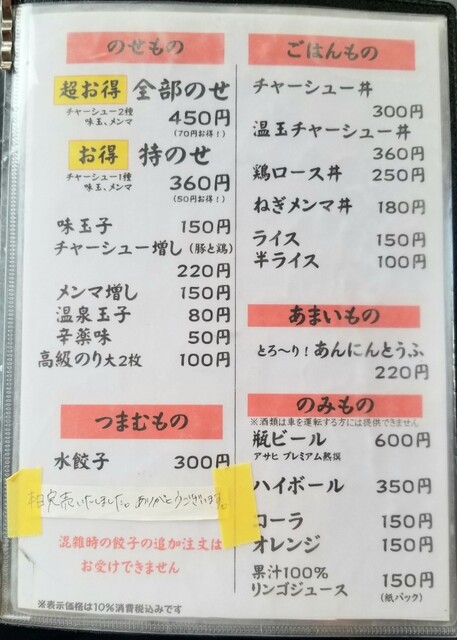 のせもの
超お得 全部のせ
チャーシュー2種
味玉、メンマ
450円
(70円お得!)
お得 特のせ
チャーシュー1種
味玉、メンマ
360円
(50円お得!)
味玉子 150円
チャーシュー増し(豚と鶏)
220円
メンマ増し 150円
温泉玉子 80円
辛薬味 50円
高級のり大2枚 100円
つまむもの
水餃子 300円
完売いたしました。ありがとうございます。
混雑時の餃子の追加注文は
お受けできません
※表示価格は10%消費税込みです
ごはんもの
チャーシュー丼
300円
温玉チャーシュー丼
360円
鶏ロース丼 250円
ねぎメンマ丼 180円
ライス 150円
半ライス 100円
あまいもの
とろ〜り!あんにんとうふ
220円
のみもの
※酒類は車を運転する方には提供できません
瓶ビール 600円
アサヒ プレミアム熟撰
ハイボール 350円
コーラ 150円
オレンジ 150円
果汁100%
リンゴジュース 150円
(紙パック)